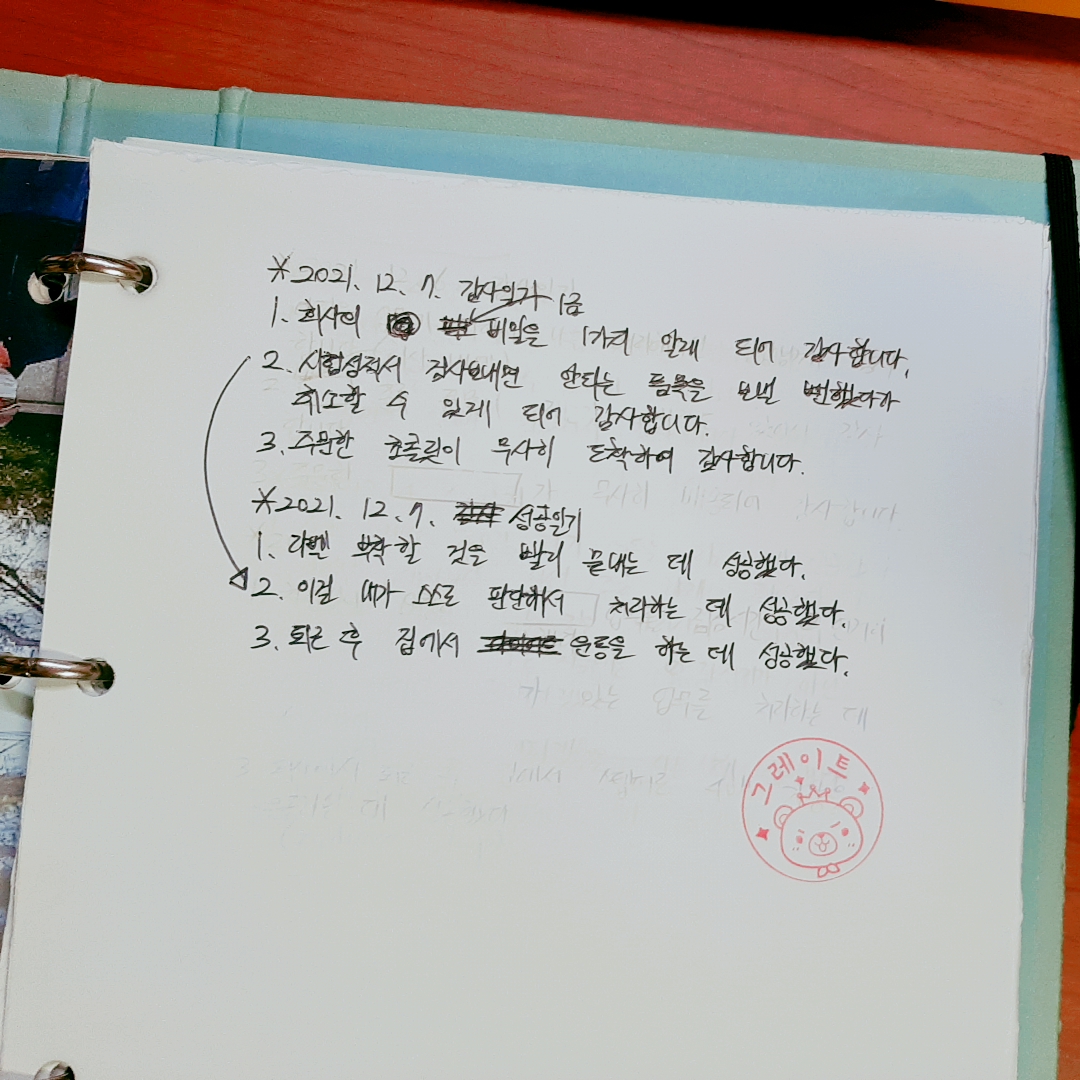 *2021. 12. 7. 감사일기 1급
1. 회사의 비밀을 1가지 알게 되어 감사합니다.
2. 시험성적서 감사보내면 안되는 품목을 보낼 뻔했다가
취소할 수 있게 되어 감사합니다.
3. 주문한 초콜릿이 무사히 도착하여 감사합니다.
*2021. 12. 7. 성공일기
1. 라벨 부착할 것을 빨리 끝내는 데 성공했다.
2. 이걸 내가 스스로 판단해서 처리하는 데 성공했다.
3. 퇴근 후 집에서 운동을 하는 데 성공했다.
그레이트